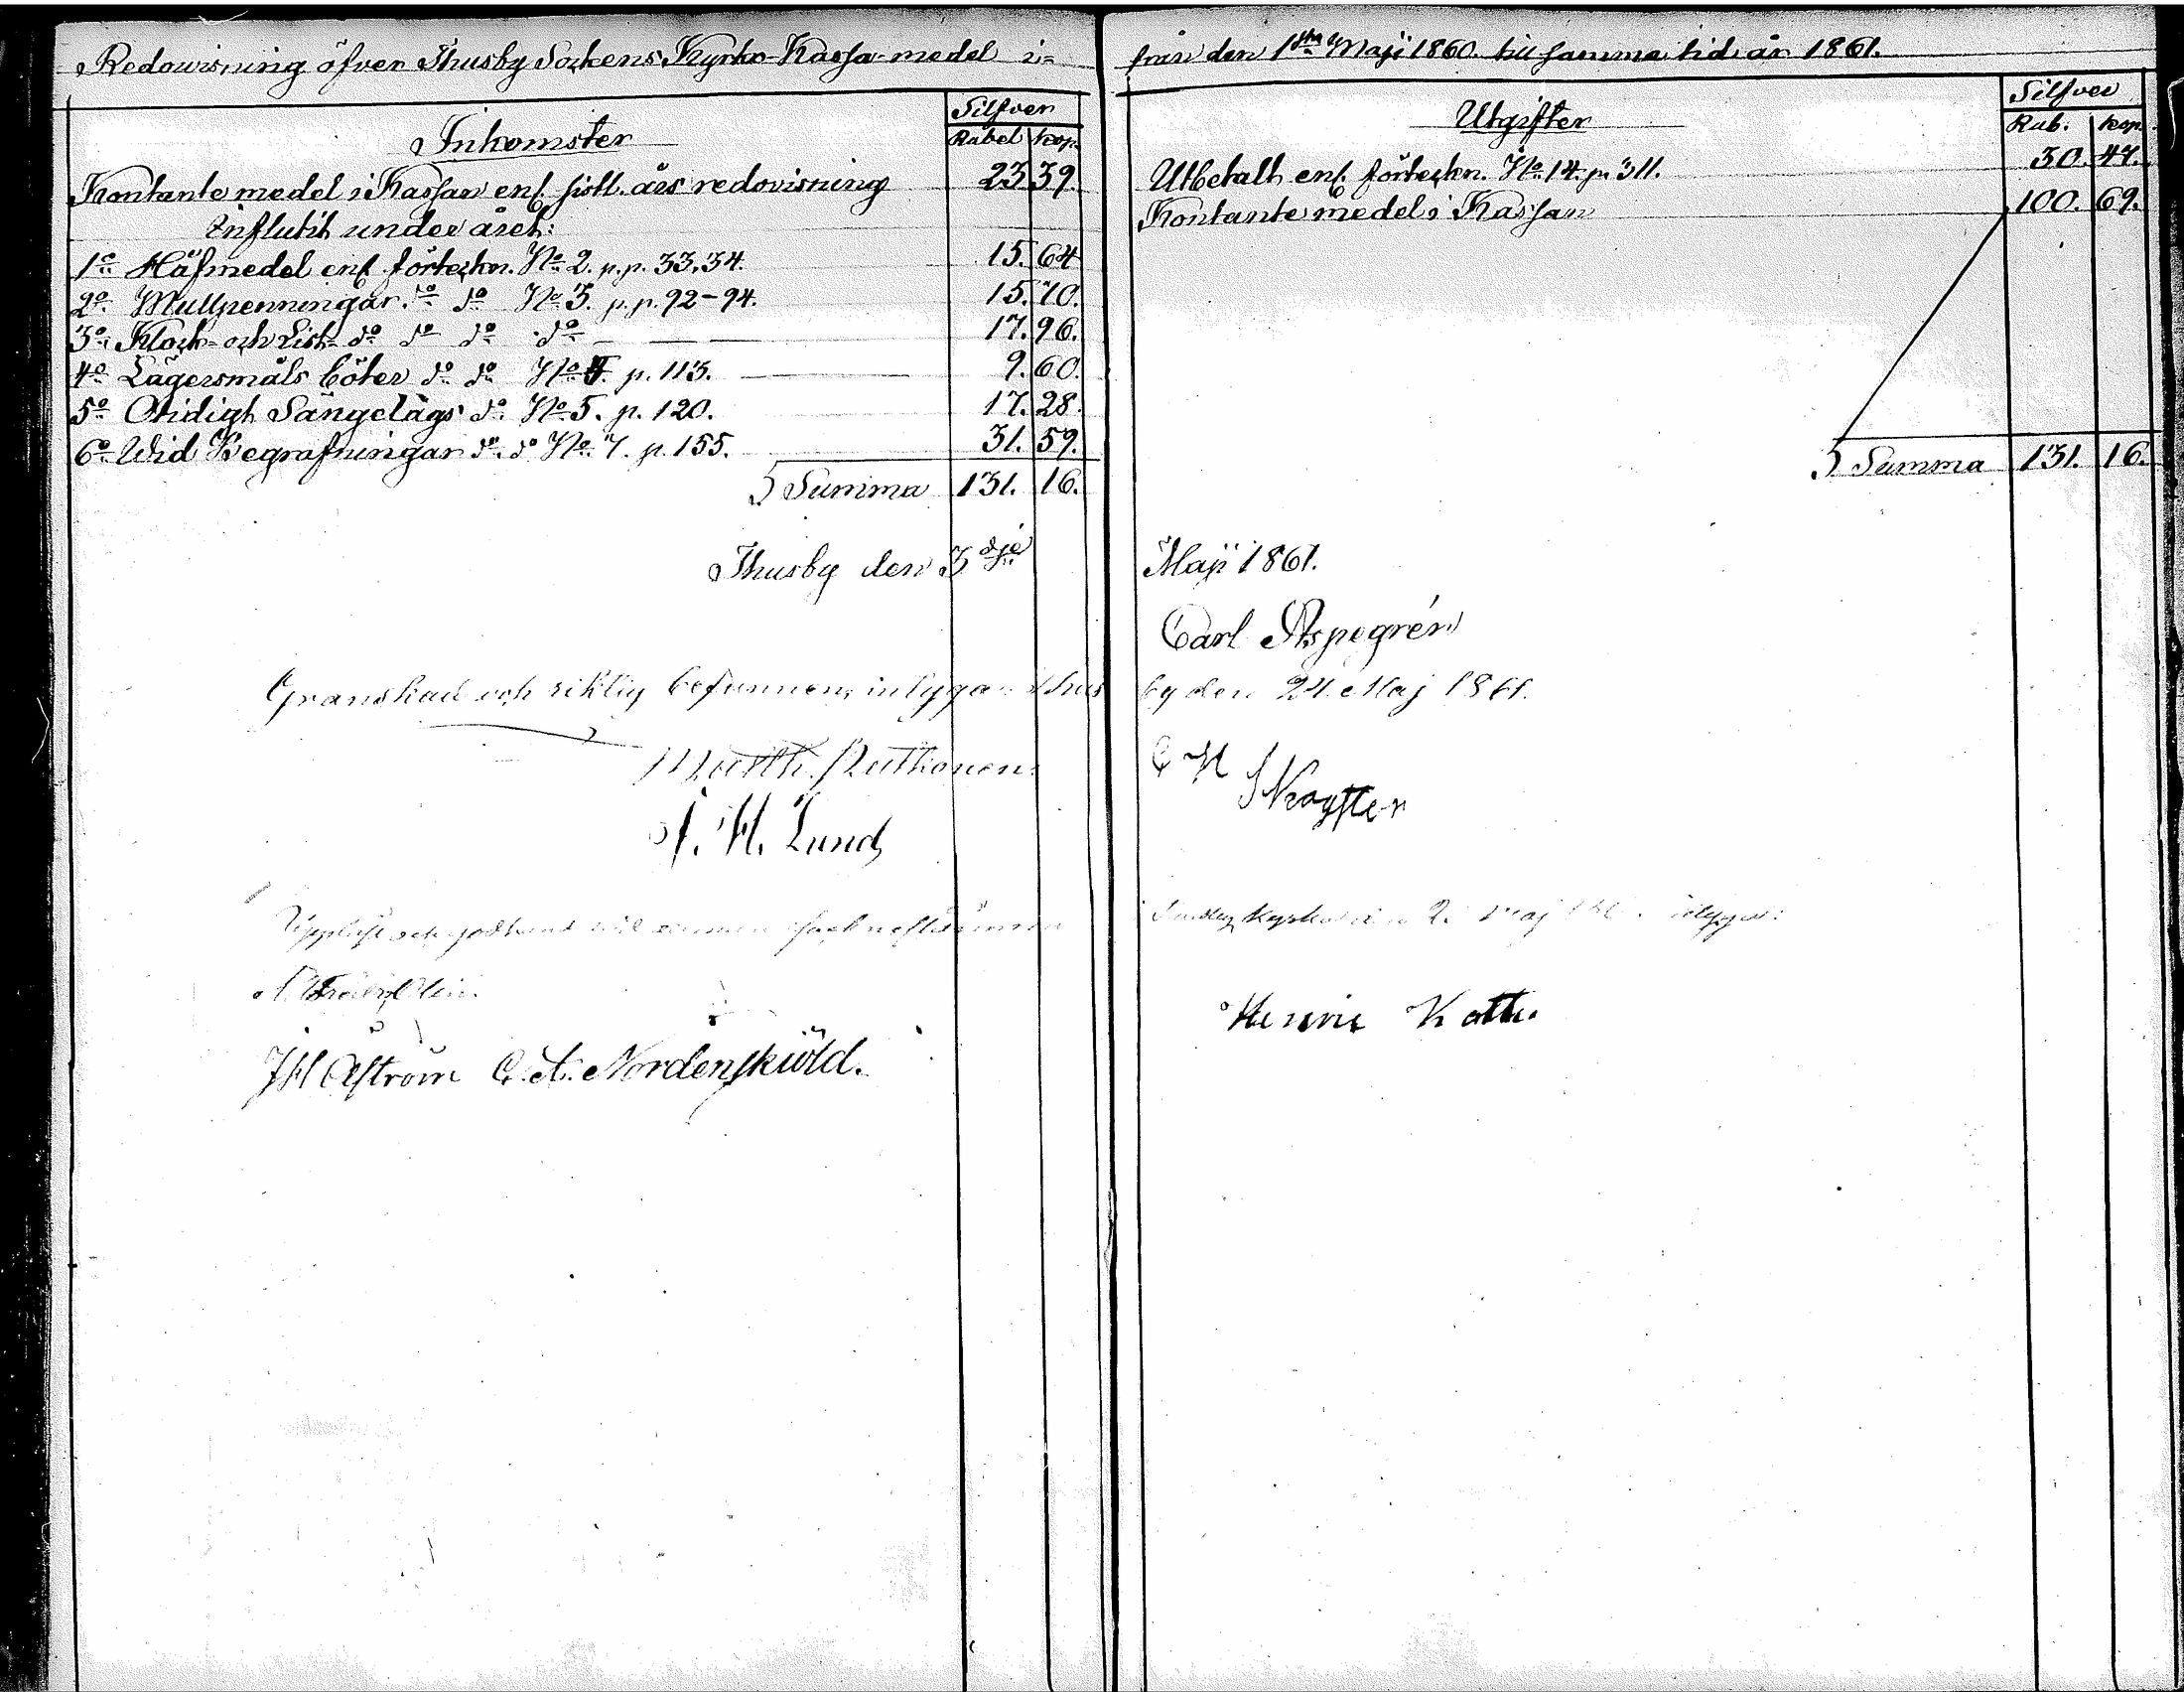 Redowisning öfver Thusby Sockens Kyrko-Kassa-medel i=
Inkomster
Silfver
Rubel kop.
Kontante medel i Kassan enl. sistl. års redovisning 23 39.
Influtit under året:
1o Håfmedel enl. förteckn. No 2. p.p. 33, 34. 15. 64
2o Mullpenningar do do No 3. p.p. 92-94. 15. 70.
3o Klock- och List- do do do do 17. 96.
4o Lägersmåls böter do do No 4. p. 113. 9. 60.
5o Otidigt Sängelags do No 5. p. 120. 17. 28.
6o Wid Begrafningar do do No 7. p. 155. 31. 59.
Summa 131. 16.
Thusby den 3dje
Granskad och riktig befunnen, intyga Thus
Matth. Ruthonen
A. H. Lund
Uppläst och godkänd
J H Åström C. A. Nordenskiöld.
från den 1sta Maji 1860 till samma tid år 1861.
Utgifter
Silfver
Rub. kop.
Utbetalt enl. förteckn. No 14. p. 311. 30. 47.
Kontante medel i Kassan 100. 69.
Summa 131. 16.
Maji 1861.
Carl Aspegrén
by den 24. Maj 1861.
C H
Maj intygar:
Henric